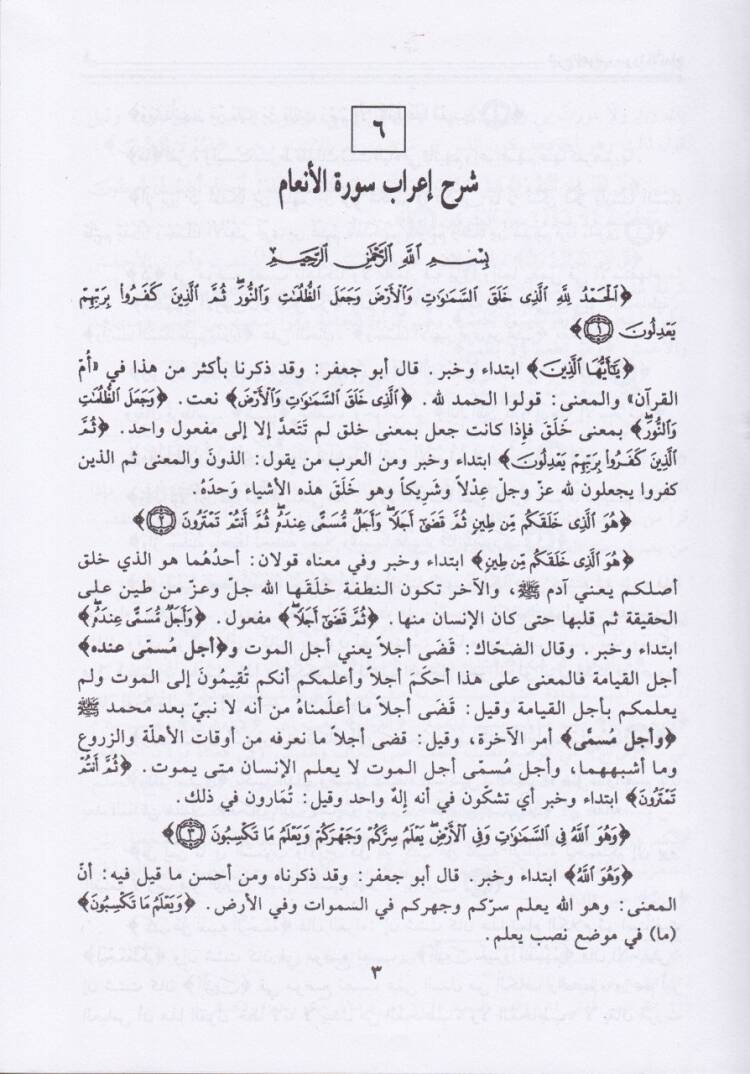 ٦
شرح إعراب سورة الأنعام
بِسْمِ اللَّهِ الرَّحْمَٰنِ الرَّحِيمِ
﴿الْحَمْدُ لِلَّهِ الَّذِي خَلَقَ السَّمَٰوَٰتِ وَالْأَرْضَ وَجَعَلَ الظُّلُمَٰتِ وَالنُّورَ ثُمَّ الَّذِينَ كَفَرُوا بِرَبِّهِمْ
يَعْدِلُونَ ۝١﴾
﴿يَٰٓأَيُّهَا الَّذِينَ﴾ ابتداء وخبر. قال أبو جعفر: وقد ذكرنا بأكثر من هذا في «أمّ
القرآن» والمعنى: قولوا الحمد لله. ﴿الَّذِي خَلَقَ السَّمَٰوَٰتِ وَالْأَرْضَ﴾ نعت. ﴿وَجَعَلَ الظُّلُمَٰتِ
وَالنُّورَ﴾ بمعنى خَلَقَ فإذا كانت جعل بمعنى خلق لم تَتَعدَّ إلا إلى مفعول واحد. ﴿ثُمَّ
الَّذِينَ كَفَرُوا بِرَبِّهِمْ يَعْدِلُونَ﴾ ابتداء وخبر ومن العرب من يقول: الذونَ والمعنى ثم الذين
كفروا يجعلون لله عزّ وجلّ عِدْلاً وشريكاً وهو خَلَقَ هذه الأشياء وَحدَهُ.
﴿هُوَ الَّذِي خَلَقَكُم مِّن طِينٍ ثُمَّ قَضَىٰٓ أَجَلًا وَأَجَلٌ مُّسَمًّى عِندَهُۥ ثُمَّ أَنتُمْ تَمْتَرُونَ ۝٢﴾
﴿هُوَ الَّذِي خَلَقَكُم مِّن طِينٍ﴾ ابتداء وخبر وفي معناه قولان: أحدُهُما هو الذي خلق
أصلكم يعني آدم ﷺ، والآخر تكون النطفة خَلَقَها الله جلّ وعزّ من طين على
الحقيقة ثم قلبها حتى كان الإنسان منها. ﴿ثُمَّ قَضَىٰٓ أَجَلًا﴾ مفعول. ﴿وَأَجَلٌ مُّسَمًّى عِندَهُۥ﴾
ابتداء وخبر. وقال الضحّاك: قَضَى أجلاً يعني أجل الموت و﴿أجل مُسمّى عنده﴾
أجل القيامة فالمعنى على هذا أحكَمَ أجلاً وأعلمكم أنكم تُقيمُونَ إلى الموت ولم
يعلمكم بأجل القيامة وقيل: قَضَى أجلاً ما أعلَمناهُ من أنه لا نبيّ بعد محمد ﷺ
﴿وأجل مسمّى﴾ أمر الآخرة، وقيل: قضى أجلاً ما نعرفه من أوقات الأهلّة والزروع
وما أشبههما، وأجل مُسمّى أجل الموت لا يعلم الإنسان متى يموت. ﴿ثُمَّ أَنتُمْ
تَمْتَرُونَ﴾ ابتداء وخبر أي تشكّون في أنه إلهٌ واحد وقيل: تُمَارون في ذلك.
﴿وَهُوَ اللَّهُ فِي السَّمَٰوَٰتِ وَفِي الْأَرْضِ يَعْلَمُ سِرَّكُمْ وَجَهْرَكُمْ وَيَعْلَمُ مَا تَكْسِبُونَ ۝٣﴾
﴿وَهُوَ اللَّهُ﴾ ابتداء وخبر. قال أبو جعفر: وقد ذكرناه ومن أحسن ما قيل فيه: أنّ
المعنى: وهو الله يعلم سرّكم وجهركم في السموات وفي الأرض. ﴿وَيَعْلَمُ مَا تَكْسِبُونَ﴾
(ما) في موضع نصب يعلم.
٣